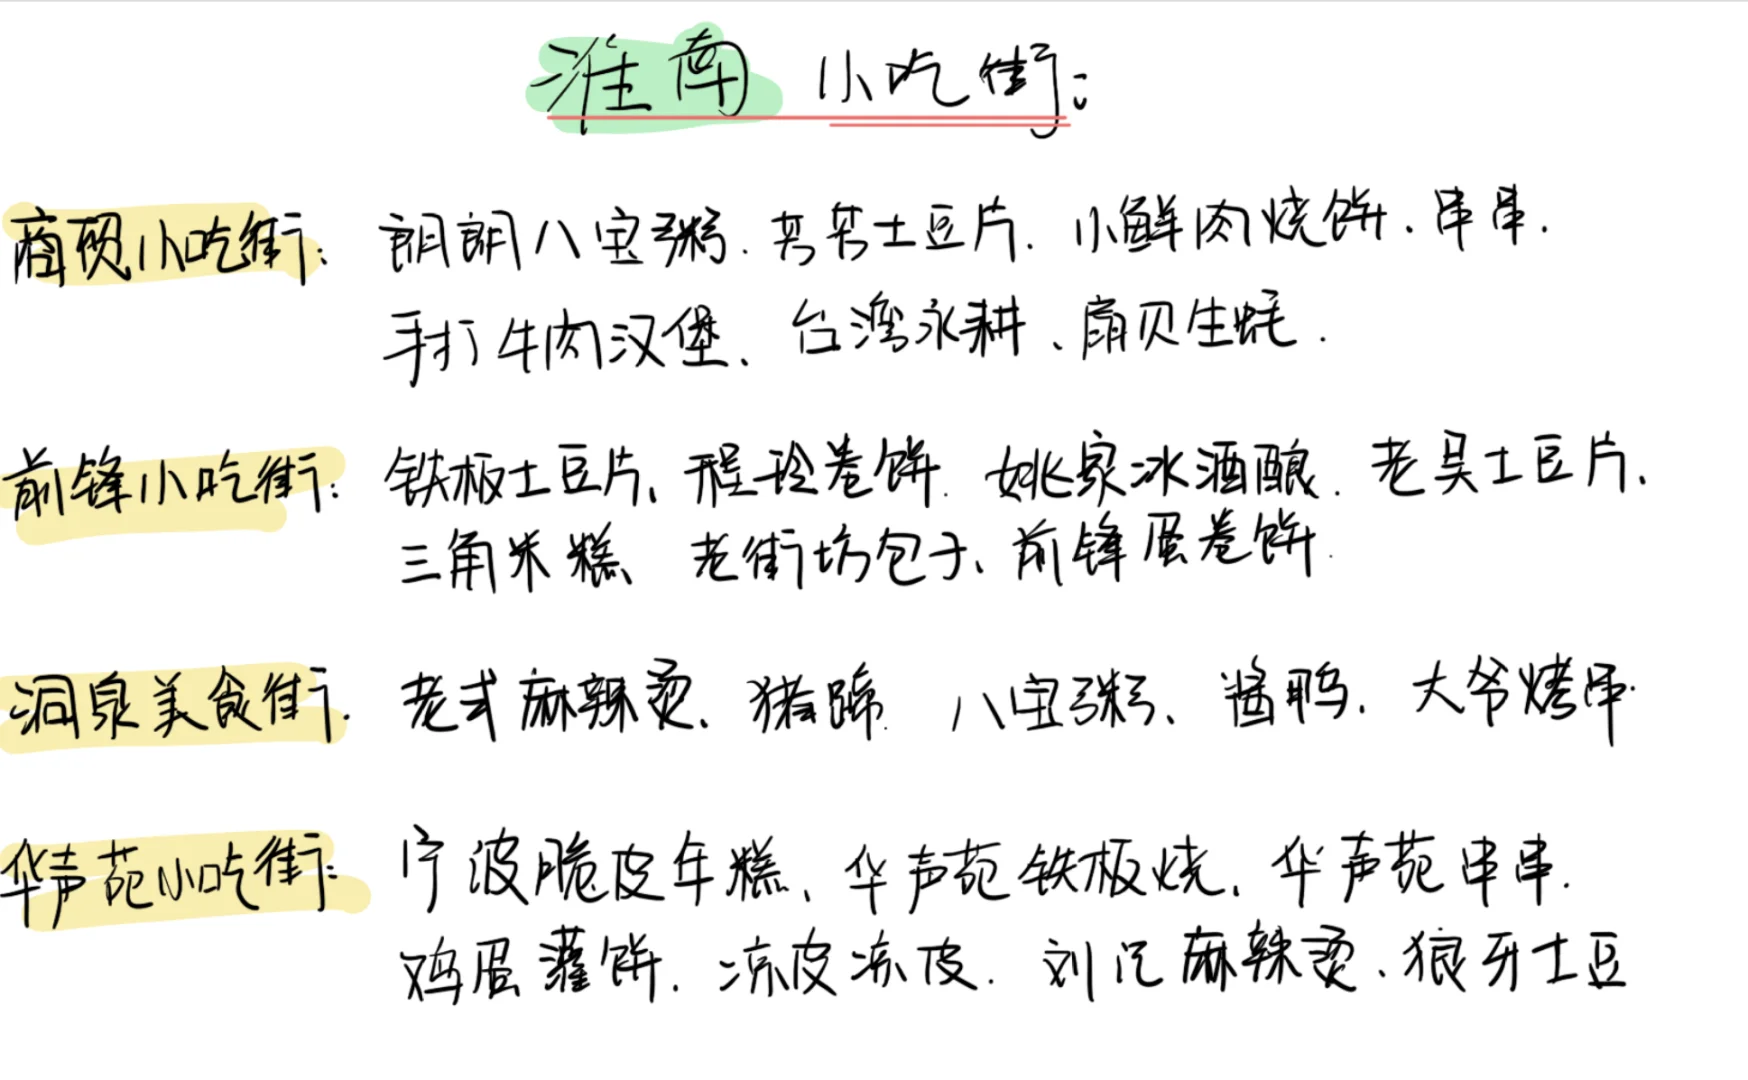 淮南小吃街:
商贸小吃街: 朗朗八宝粥、芳芳土豆片、小鲜肉烧饼、串串、
手打牛肉汉堡、台湾永耕、扇贝生蚝.
前锋小吃街: 铁板土豆片、程玲卷饼、姚家冰酒酿、老吴土豆片、
三角米糕、老街坊包子、前锋蛋卷饼.
洞泉美食街. 老式麻辣烫、猪蹄、八宝粥、酱鸭、大爷烤串.
华声苑小吃街: 宁波脆皮年糕、华声苑铁板烧、华声苑串串.
鸡蛋灌饼、凉皮冻皮、刘记麻辣烫、狼牙土豆